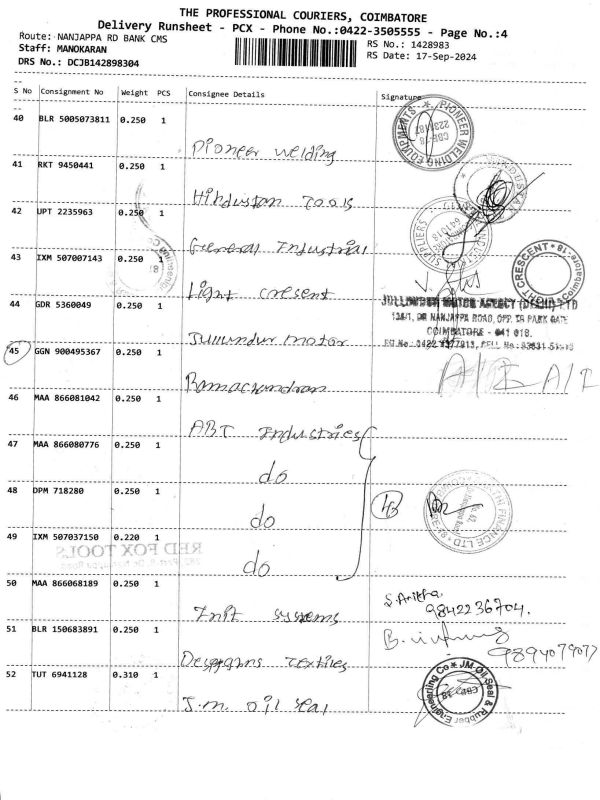 THE PROFESSIONAL COURIERS, COIMBATORE
Delivery Runsheet - PCX - Phone No.:0422-3505555 - Page No.:4
Route: NANJAPPA RD BANK CMS
RS No.: 1428983
Staff: MANOKARAN
RS Date: 17-Sep-2024
DRS No.: DCJB142898304
S No Consignment No Weight PCS Consignee Details Signature
40 BLR 5005073811 0.250 1
Pioneer welding
PIONEER WELDING EQUIPMENTS
41 RKT 9450441 0.250 1
Hindustan Tools
42 UPT 2235963 0.250 1
General Industrial
SUPPLIERS
43 IXM 507007143 0.250 1
Light cresent
CRESCENT
44 GDR 5360049 0.250 1
JULLUNDUR MOTOR AGENCY (DELHI) LTD
DR NANJAPPA ROAD, OPP. TO PARK GATE
COIMBATORE - 641 018.
Jullundur motor
45 GGN 900495367 0.250 1
Ramachandran
46 MAA 866081042 0.250 1
ABT Industries
47 MAA 866080776 0.250 1
do
48 DPM 718280 0.250 1
do
FINANCE LTD
49 IXM 507037150 0.220 1
RED FOX TOOLS
do
50 MAA 866068189 0.250 1
Init systems
9842236704.
51 BLR 150683891 0.250 1
textiles
9894079077
52 TUT 6941128 0.310 1
J.m. oil seal
JM.Oil Seal & Rubber Engineering Co
CBE-18